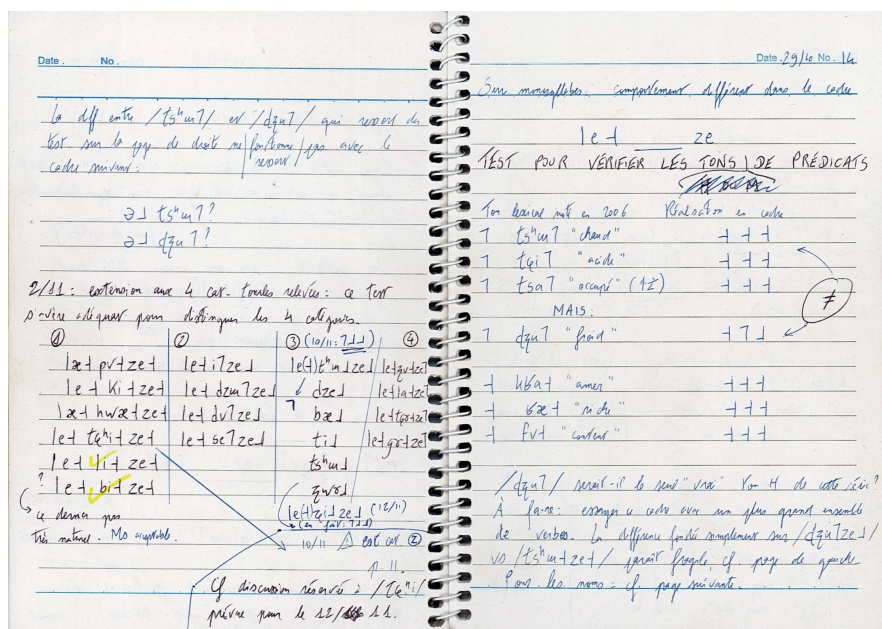 Date. No.
La diff entre /tsʰɯ˥/ et /dʐu˥/ qui ressort du
test sur la page de droite ne fonctionne / ressort / pas avec le
cadre suivant:
ə˩ tsʰɯ˥?
ə˩ dʐu˥?
2/11: extension aux 4 cat. tonales relevées: ce test
s'avère adéquat pour distinguer les 4 catégories.
① ② ③ (10/11: ˥˩˩) ④
læ˧ pv˧ ze˧ le˧ i˥ ze˩ le(˧) tʰɯ˩ ze˩
le˧ ki˧ ze˧ le˧ dzɯ˥ ze˩ dze˩ le˧ la˧ ze˥
læ˧ hwæ˧ ze˧ le˧ dv˥ ze˩ ˥ bæ˩
le˧ tɕʰi˧ ze˧ le˧ se˥ ze˩ ti˩
le˧ ɬi˧ ze˧ tsʰɯ˩
? le˧ bi˧ ze˧
ce dernier pas
très naturel. Mo acceptable.
(12/11)
10/11 △ est cat ②
p. 11.
Cf discussion réservée à /tɕʰi/
prévue pour le 12/11.
Date. 29/10 No. 14
Sur monosyllabes: comportement différent dans le cadre
le˧ ___ ze
TEST POUR VÉRIFIER LES TONS DE PRÉDICATS
Ton lexical noté en 2006 Réalisation en cadre
˥ tsʰɯ˥ "chaud" ˧ ˧ ˧
˥ tɕi˥ "acide" ˧ ˧ ˧
˥ tsa˥ "occupé" ˧ ˧ ˧
≠
MAIS:
˥ dʐu˥ "froid" ˧ ˥ ˩
˧ qʰa˧ "amer" ˧ ˧ ˧
˧ ʁæ˧ "riche" ˧ ˧ ˧
˧ fv˧ "content" ˧ ˧ ˧
/dʐu˥/ serait-il le seul "vrai" ton H de cette série?
À faire: essayer ce cadre avec un plus grand ensemble
de verbes. La différence fondée simplement sur /dʐu˥ ze˩/
vs /tsʰɯ˧ ze˧/ paraît fragile, cf. page de gauche.
Pour les noms: cf page suivante.